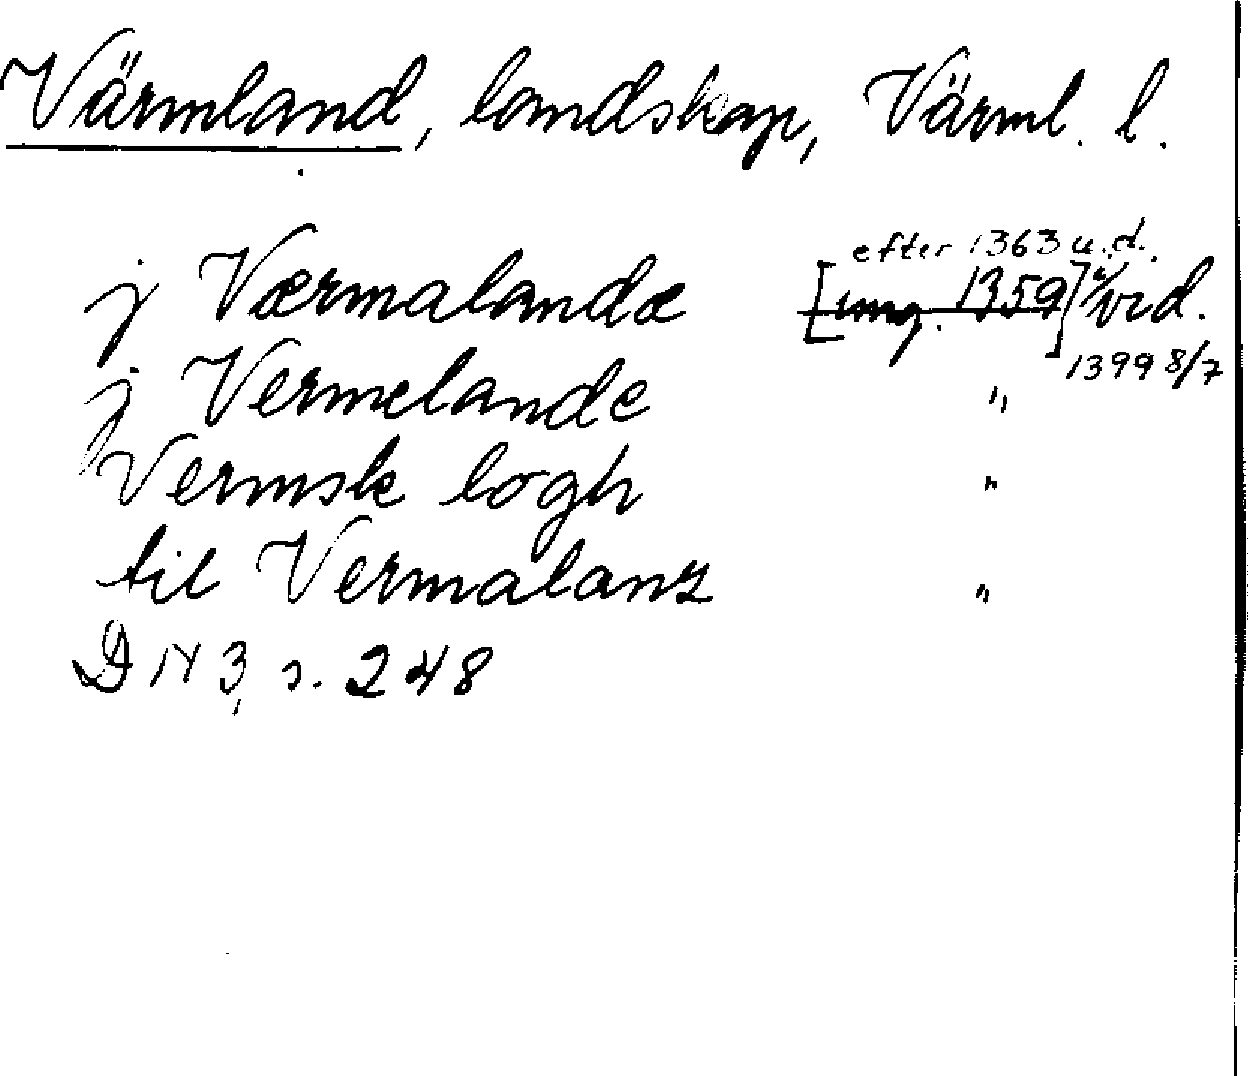 Värmland, landskap, Värml. l.
efter 1363 u.d.
jVærmalandæ [omg. 1359] vid.
1399 8/7
j Vermelande "
Vermsk logh "
til Vermalanz "
DN 3, s. 248